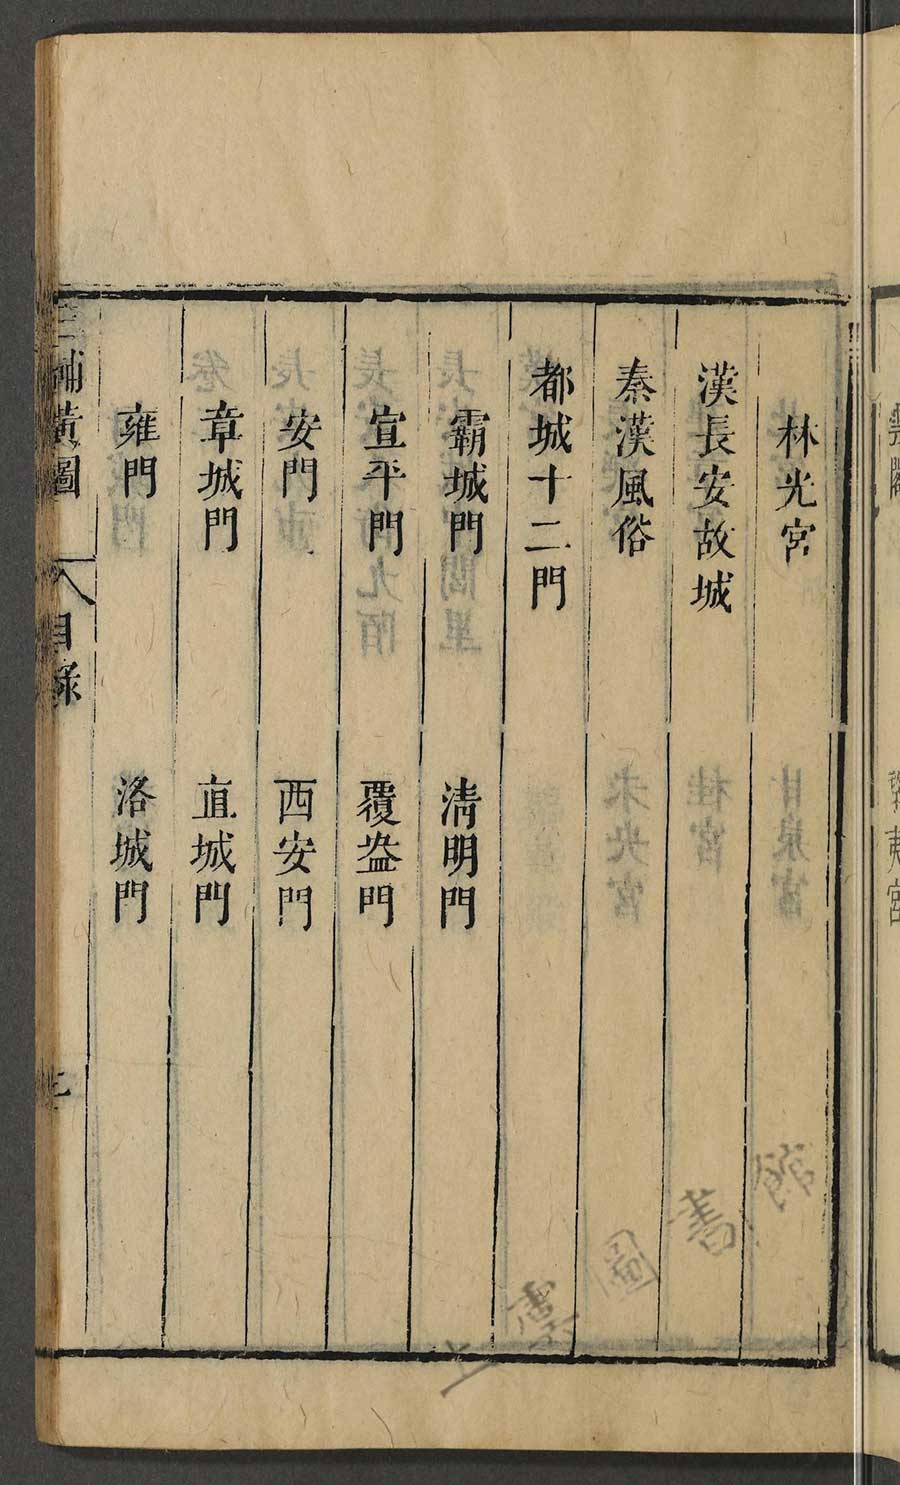 林光宮
漢長安故城
秦漢風俗
都城十二門
霸城門 清明門
宣平門 覆盎門
安門 西安門
章城門 直城門
雍門 洛城門
三輔黃圖 目錄